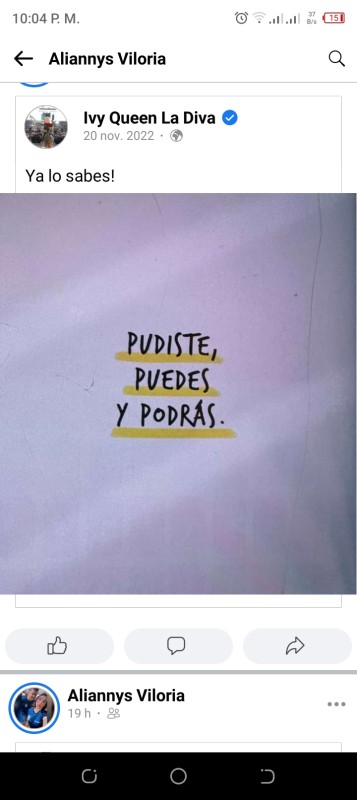 10:04 P. M.
37 B/s 15
Aliannys Viloria
Ivy Queen La Diva
20 nov. 2022 ·
Ya lo sabes!
PUDISTE,
PUEDES
Y PODRÁS.
Aliannys Viloria
19 h ·